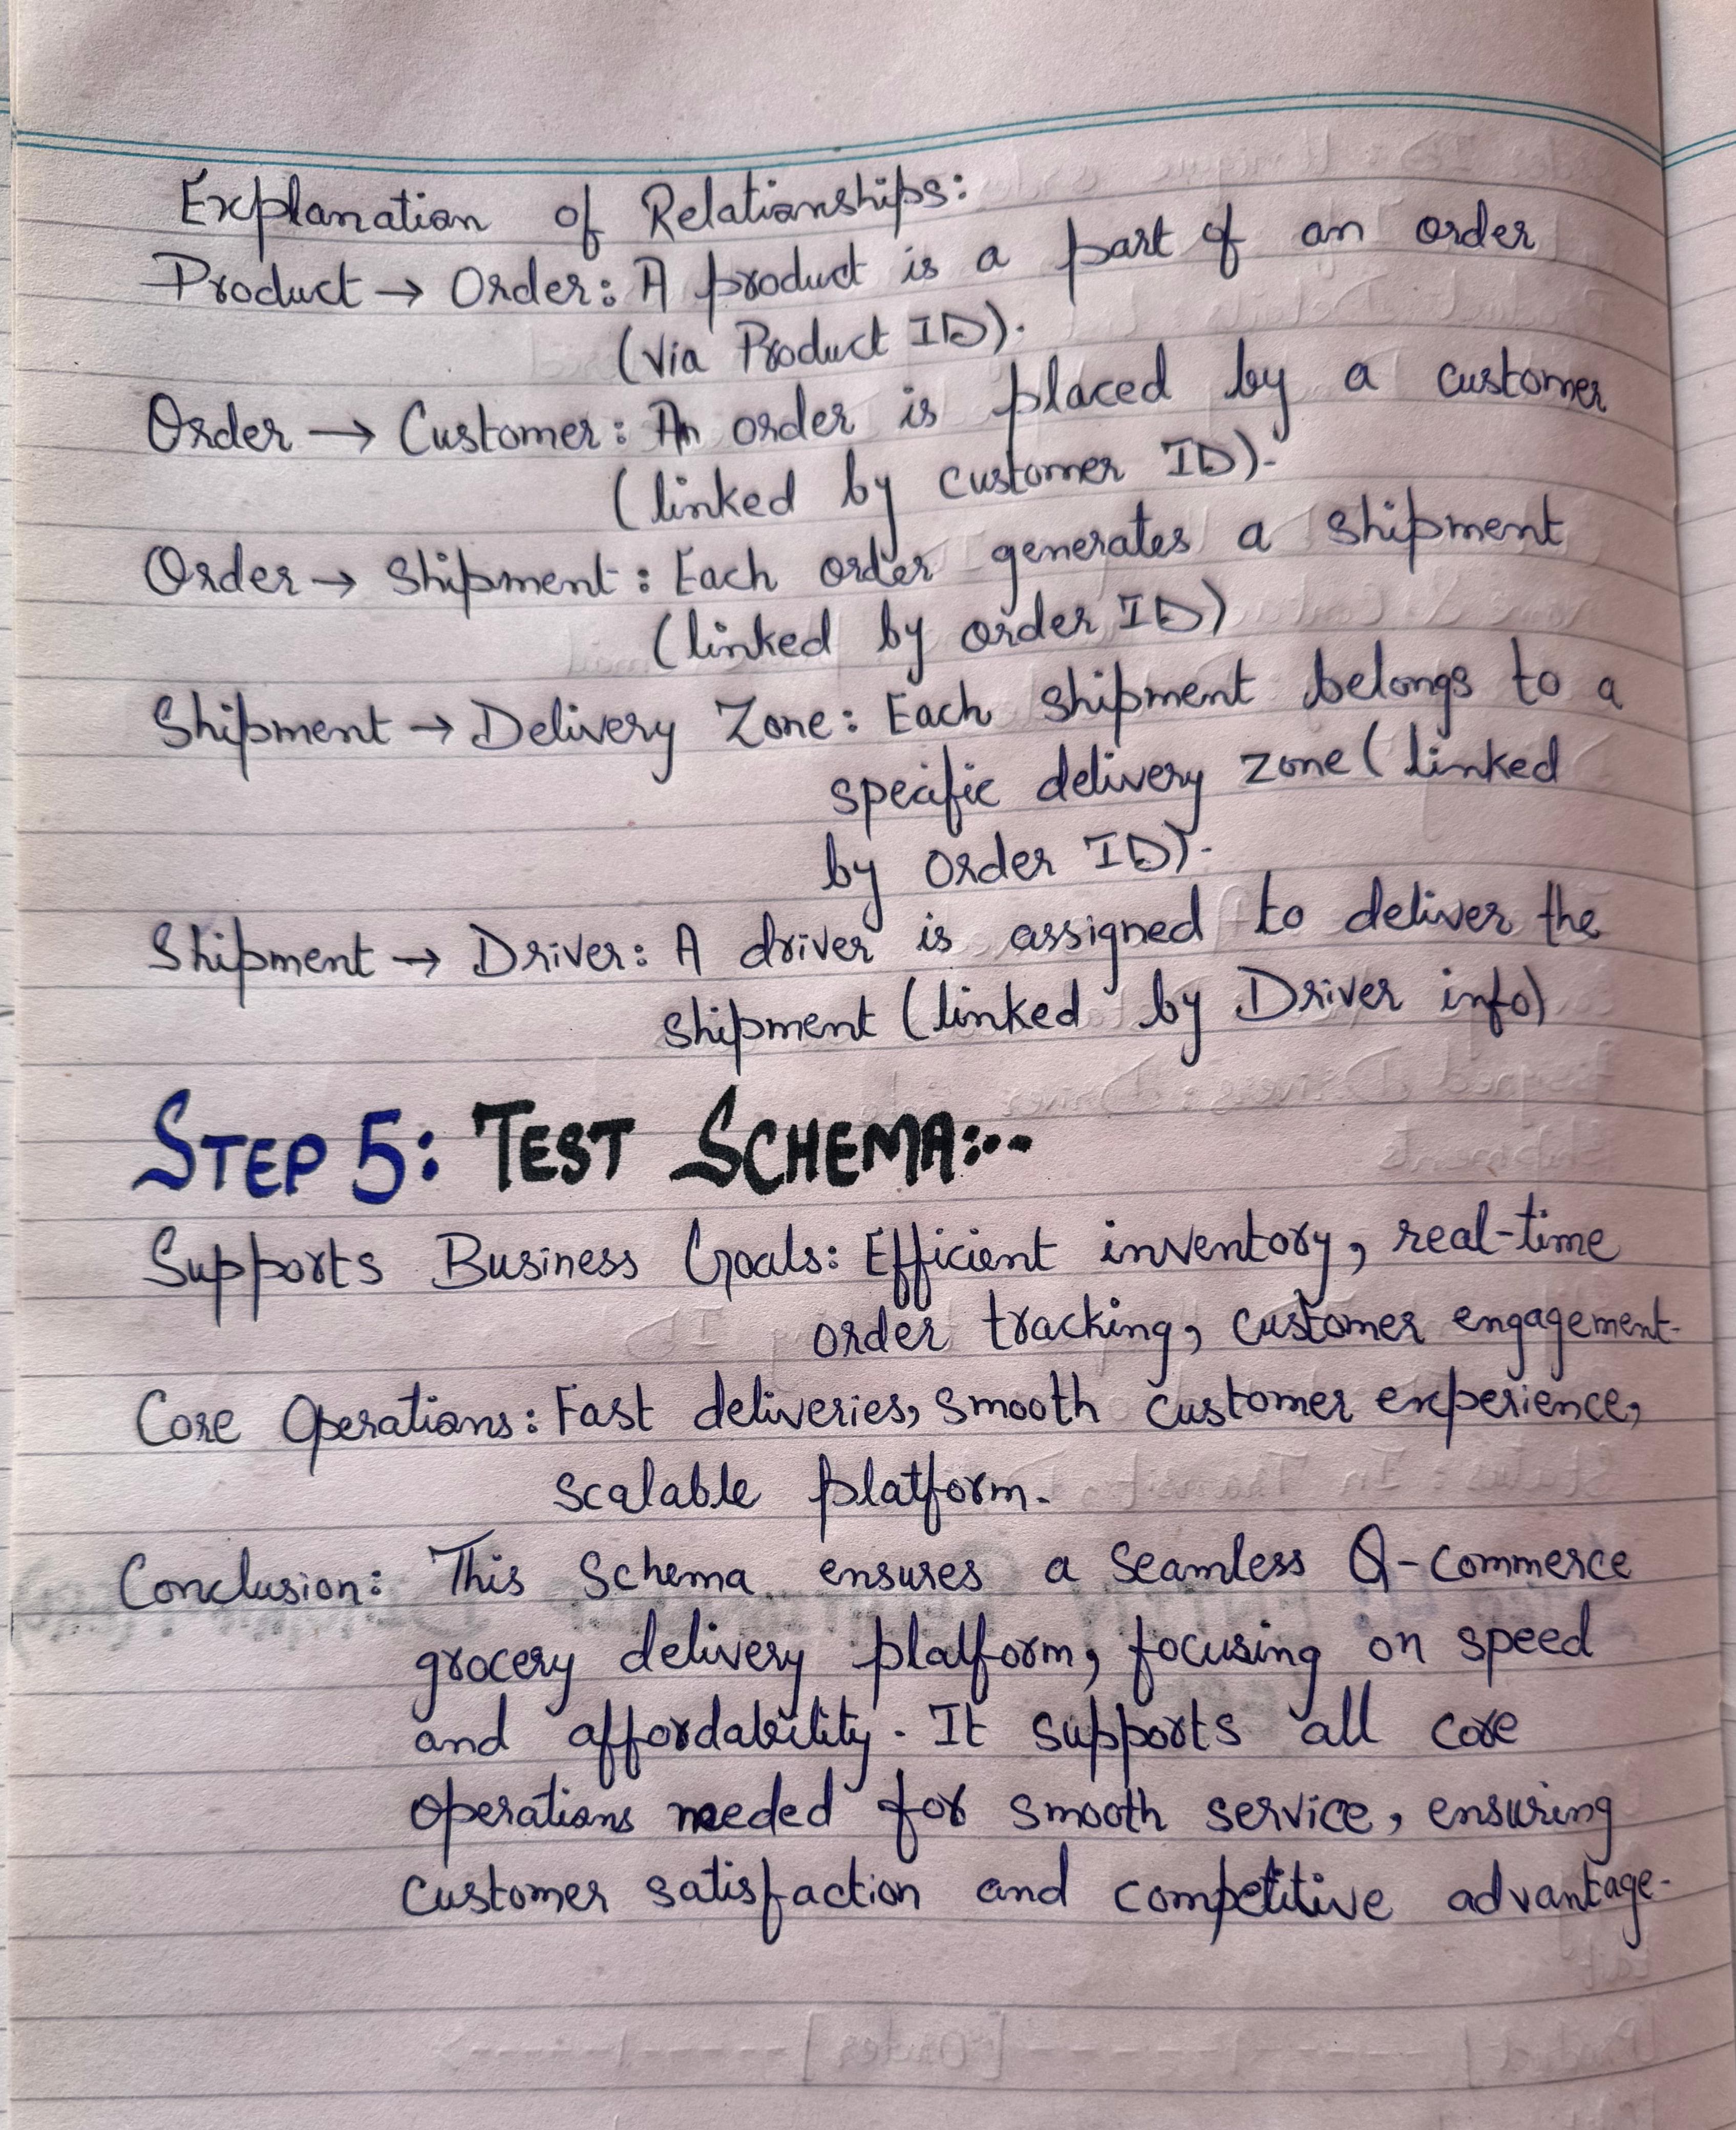 Explanation of Relationships:
Product → Order: A product is a part of an order
(via Product ID).
Order → Customer: An order is placed by a customer
(linked by customer ID).
Order → Shipment: Each order generates a shipment
(linked by order ID)
Shipment → Delivery Zone: Each shipment belongs to a
specific delivery zone (linked
by order ID).
Shipment → Driver: A driver is assigned to deliver the
shipment (linked by Driver info)
STEP 5: TEST SCHEMA:--
Supports Business Goals: Efficient inventory, real-time
order tracking, customer engagement.
Core Operations: Fast deliveries, smooth customer experience,
scalable platform.
Conclusion: This Schema ensures a seamless Q-commerce
grocery delivery platform, focusing on speed
and affordability. It supports all core
operations needed for smooth service, ensuring
customer satisfaction and competitive advantage.